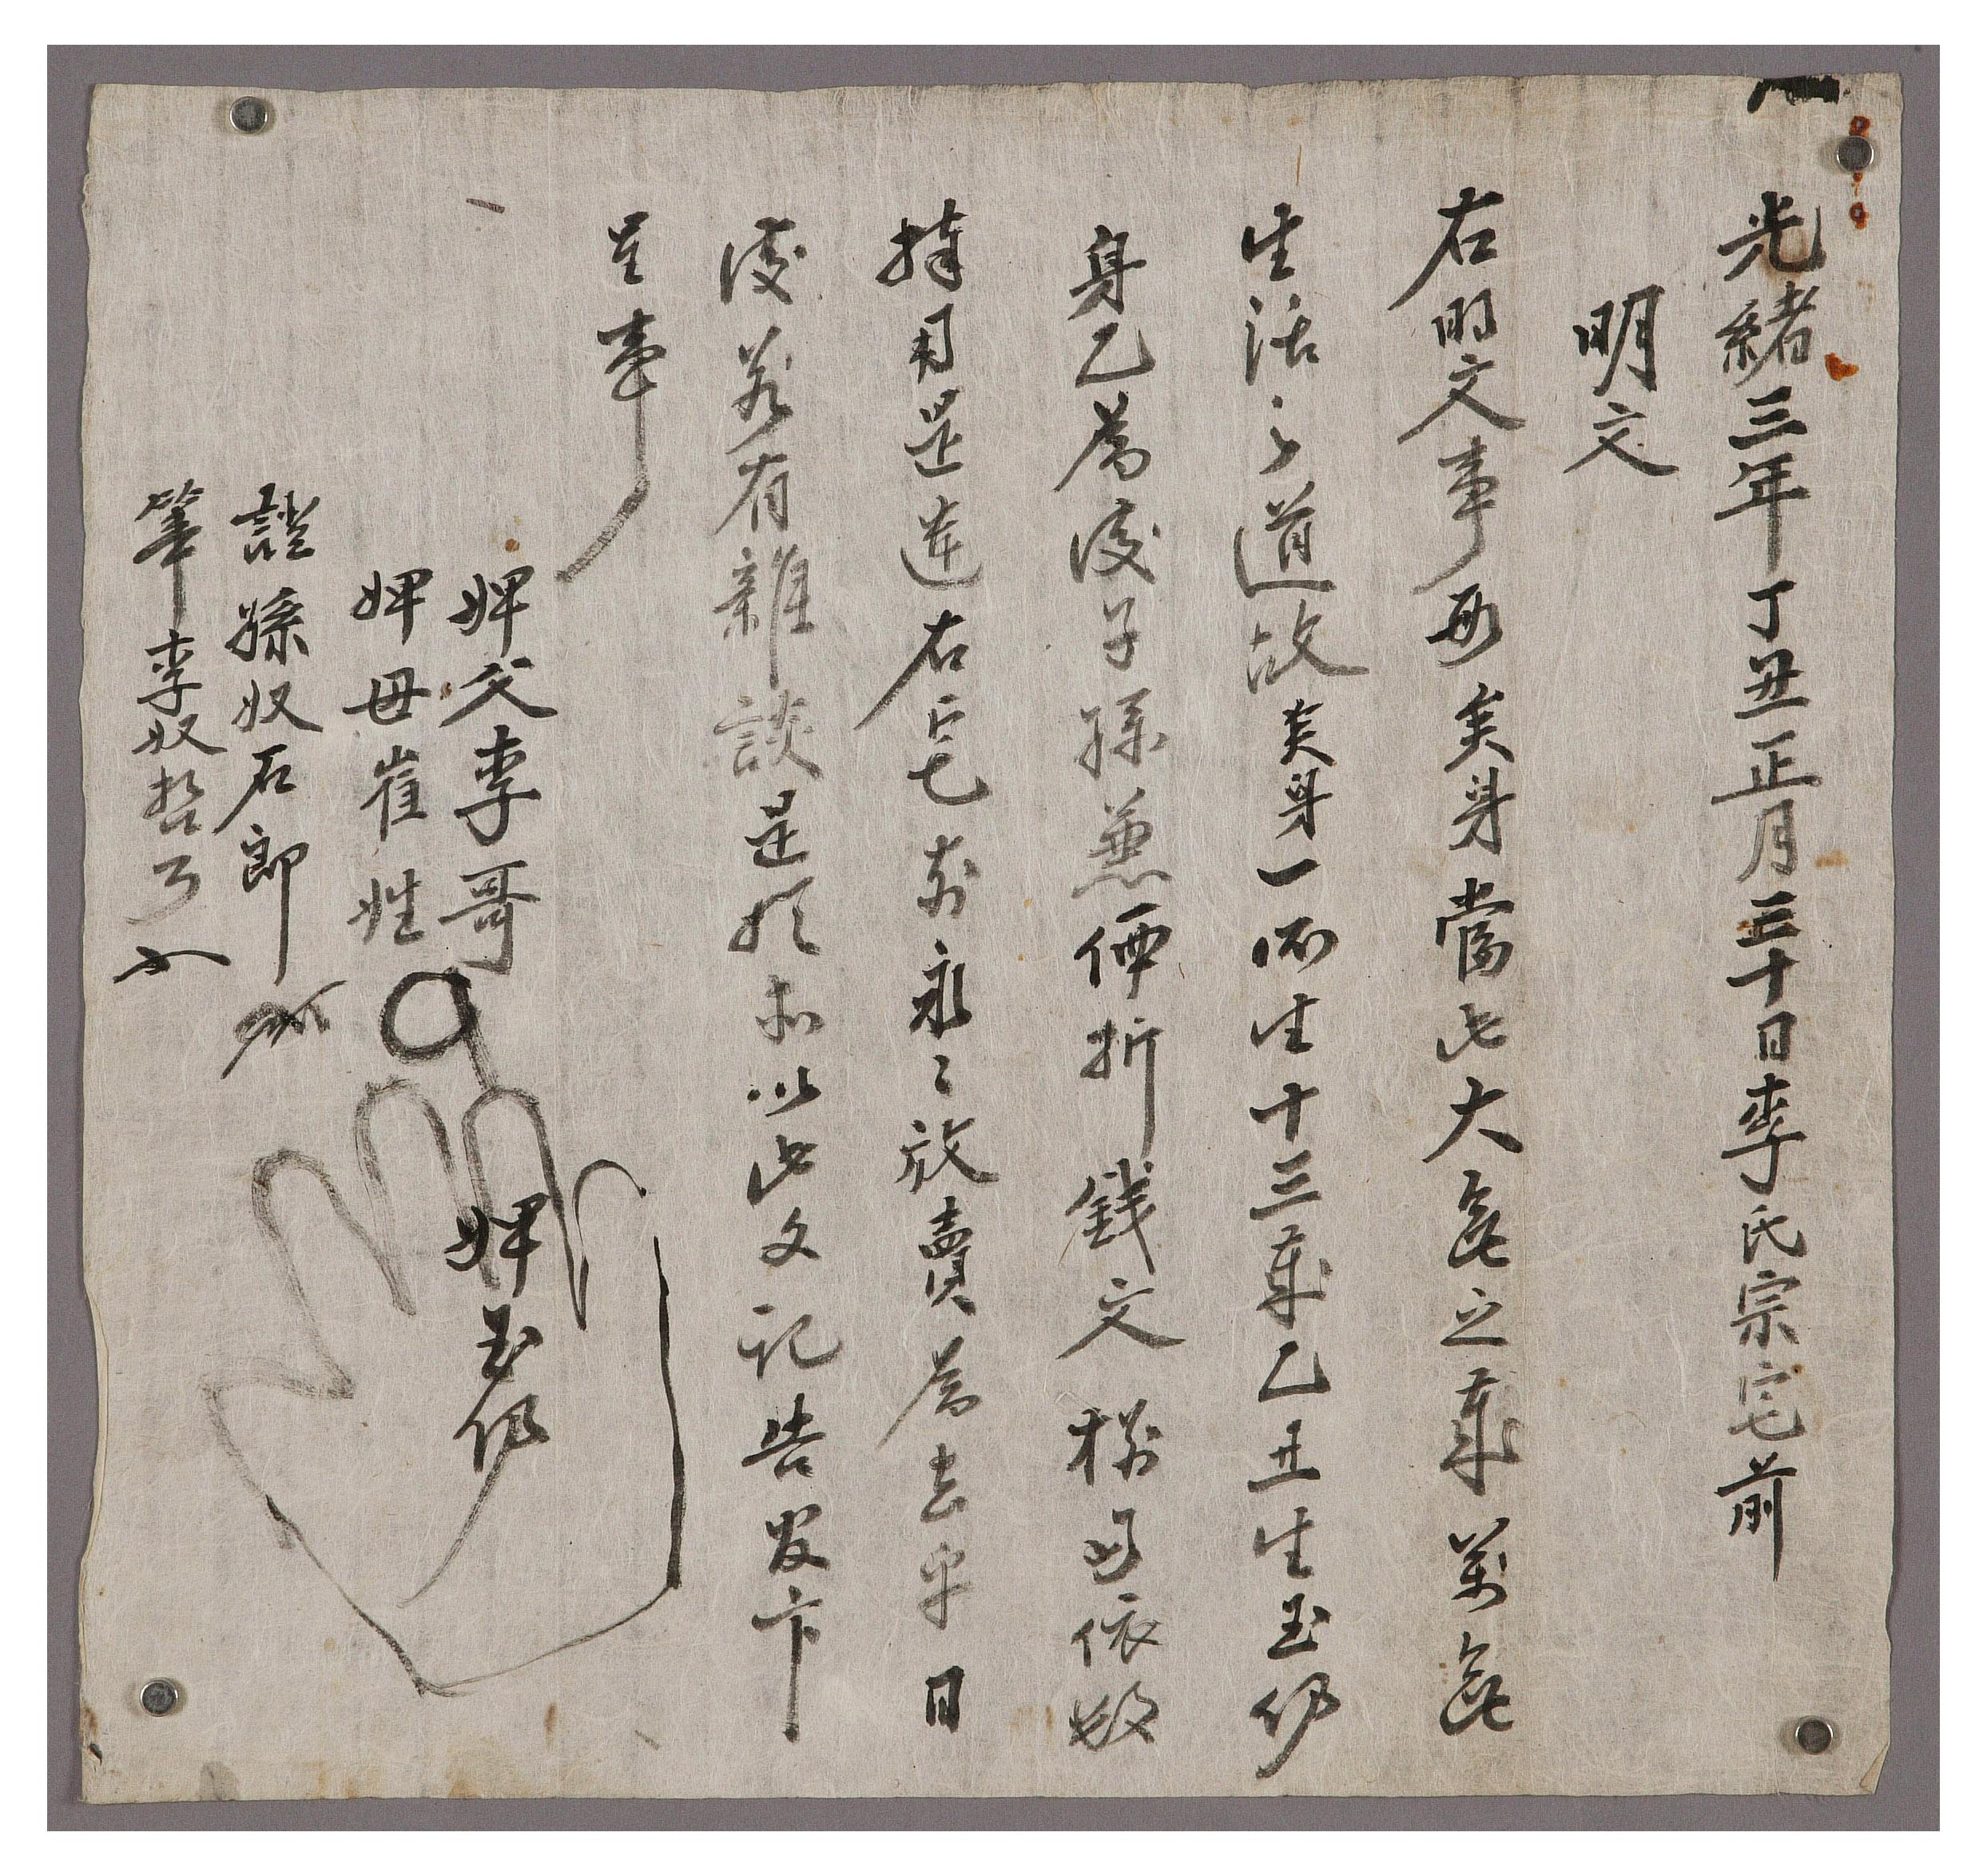 光緖三年丁丑正月三十日李氏宗宅前
明文
右明文事段矣身當此大無之歲萬無
生活之道故矣身一所生十三歲乙丑生玉伊
身乙爲後子孫兼價折錢文拾両依數
捧用是遣右宅前永〻放賣爲去乎日
後若有雜談是以此文記告官卞
呈事
婢父李哥
婢玉伊
婢母崔姓
證孫奴石郎
筆李奴哲